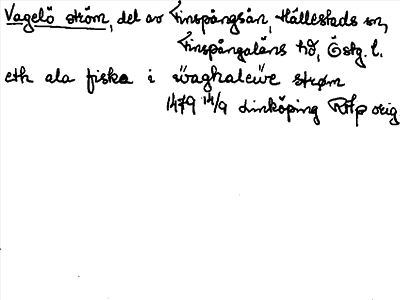 Vagelö ström, del av Finspångsån, Hällestads sn,
Finspångaläns hd, Östg. l.
eth ala fiske i waghaleüe strøm
1479 14/9 Linköping RAp orig